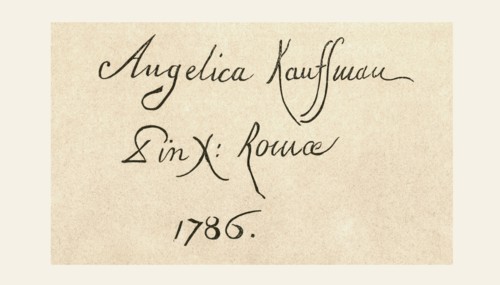 Angelica Kauffman
Pinx: Romæ
1786.